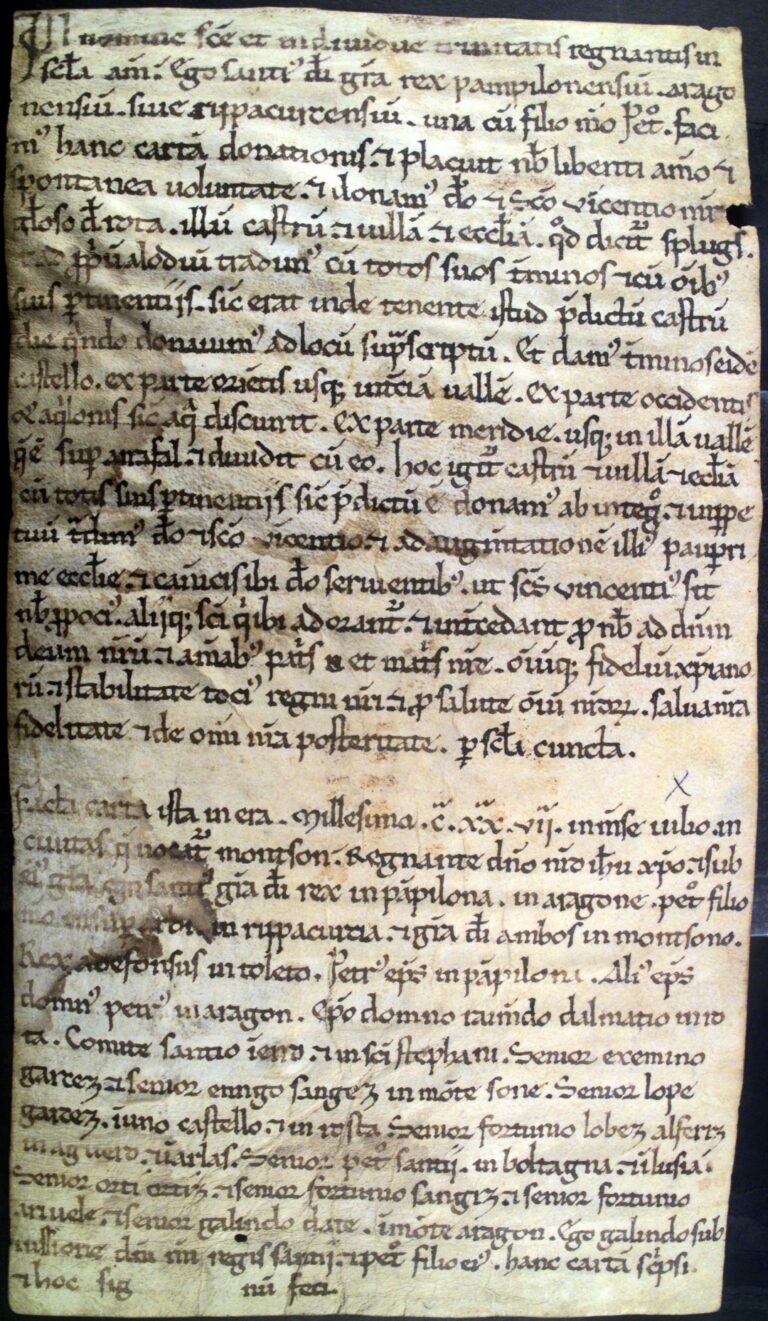 In nomine sce et individue trinitatis regnantis in
scla am. Ego santi⁹ di gra rex pampilonensiū. arago
nensiū. sive rippacurcensiū. una cū filio mo Pet⁰. faci
m⁹ hanc cartā donationis. & placuit nb libenti amo &
spontanea voluntate. & donam⁹ do & sco vicentio mr
gloso d rota. illū castrū & villā & ecclia. qd dicit splugs.
ad ppū alodiū tradim⁹ cū totos suos tminos & cū oib⁹
suis ptinentiis. sic erat inde tenente istud pdictū castrū
die qndo donavim⁹ ad locū supscriptū. Et dam⁹ tminos eidē
castello. ex parte orientis usq; vallē. ex parte occidentis
aqlonis sic aq discurrit. ex parte meridie. usq; in illā vallē
qē sup arafal. & dividit cū eo. hoc igit castrū & villā & eccliā
cū totis suis ptinentiis sic pdictū ē donam⁹ ab integ⁰. & inppe
tuū tdim⁹ do & sco vicentio. & ad augmtationē illi⁹ paupri
me ecclie. & canucis ibi do servientib⁹. ut scs vincenti⁹ sit
nb ppoci⁹. aliiq; sci q ibi adorant. & intcedant p nb ad dnm
deum nrū. & aīab⁹ pats et mats me. oiūq; fideliū xpiano
rū. & stabilitate toci⁹ regni nri. & p salute oiū nror. salva nra
fidelitate & de omi nra posteritate. p scla cuncta.
Facta carta ista in era. Millesima. c. xx. vii. in mse iulio. in
civitas q vocat montson. Regnante dno nro ihu xpo. & sub
ei⁹ gra ego santi⁹ gra di rex in papilona. in aragone. pet⁰ filio
mo in suprarbi. in rippacurcia. & gra di ambos in montsono.
Rex adefonsus in toleto. Petr⁹ eps in papilona. Ali⁹ eps
domn⁹ petr⁹ in aragon. Epo domno raimdo dalmatio in ro
ta. Comite santio & in sci stephani. Senior exemino
garcez & senior enngo sangez in mote sone. Senior lope
garcez. in uno castello. & in rosta. Senior fortunio lobez alferiz
in aguero. & varlas. Senior pet⁰ santii. in boltagna. &
Senior orti ortiz. & senior fortunio sangiz. & senior fortunio
& senior galindo date. in mote aragon. Ego galindo sub
iussione dni mi regis santii. & pet⁰ filio ei⁹. hanc cartā scpsi.
& hoc sig nū feci.